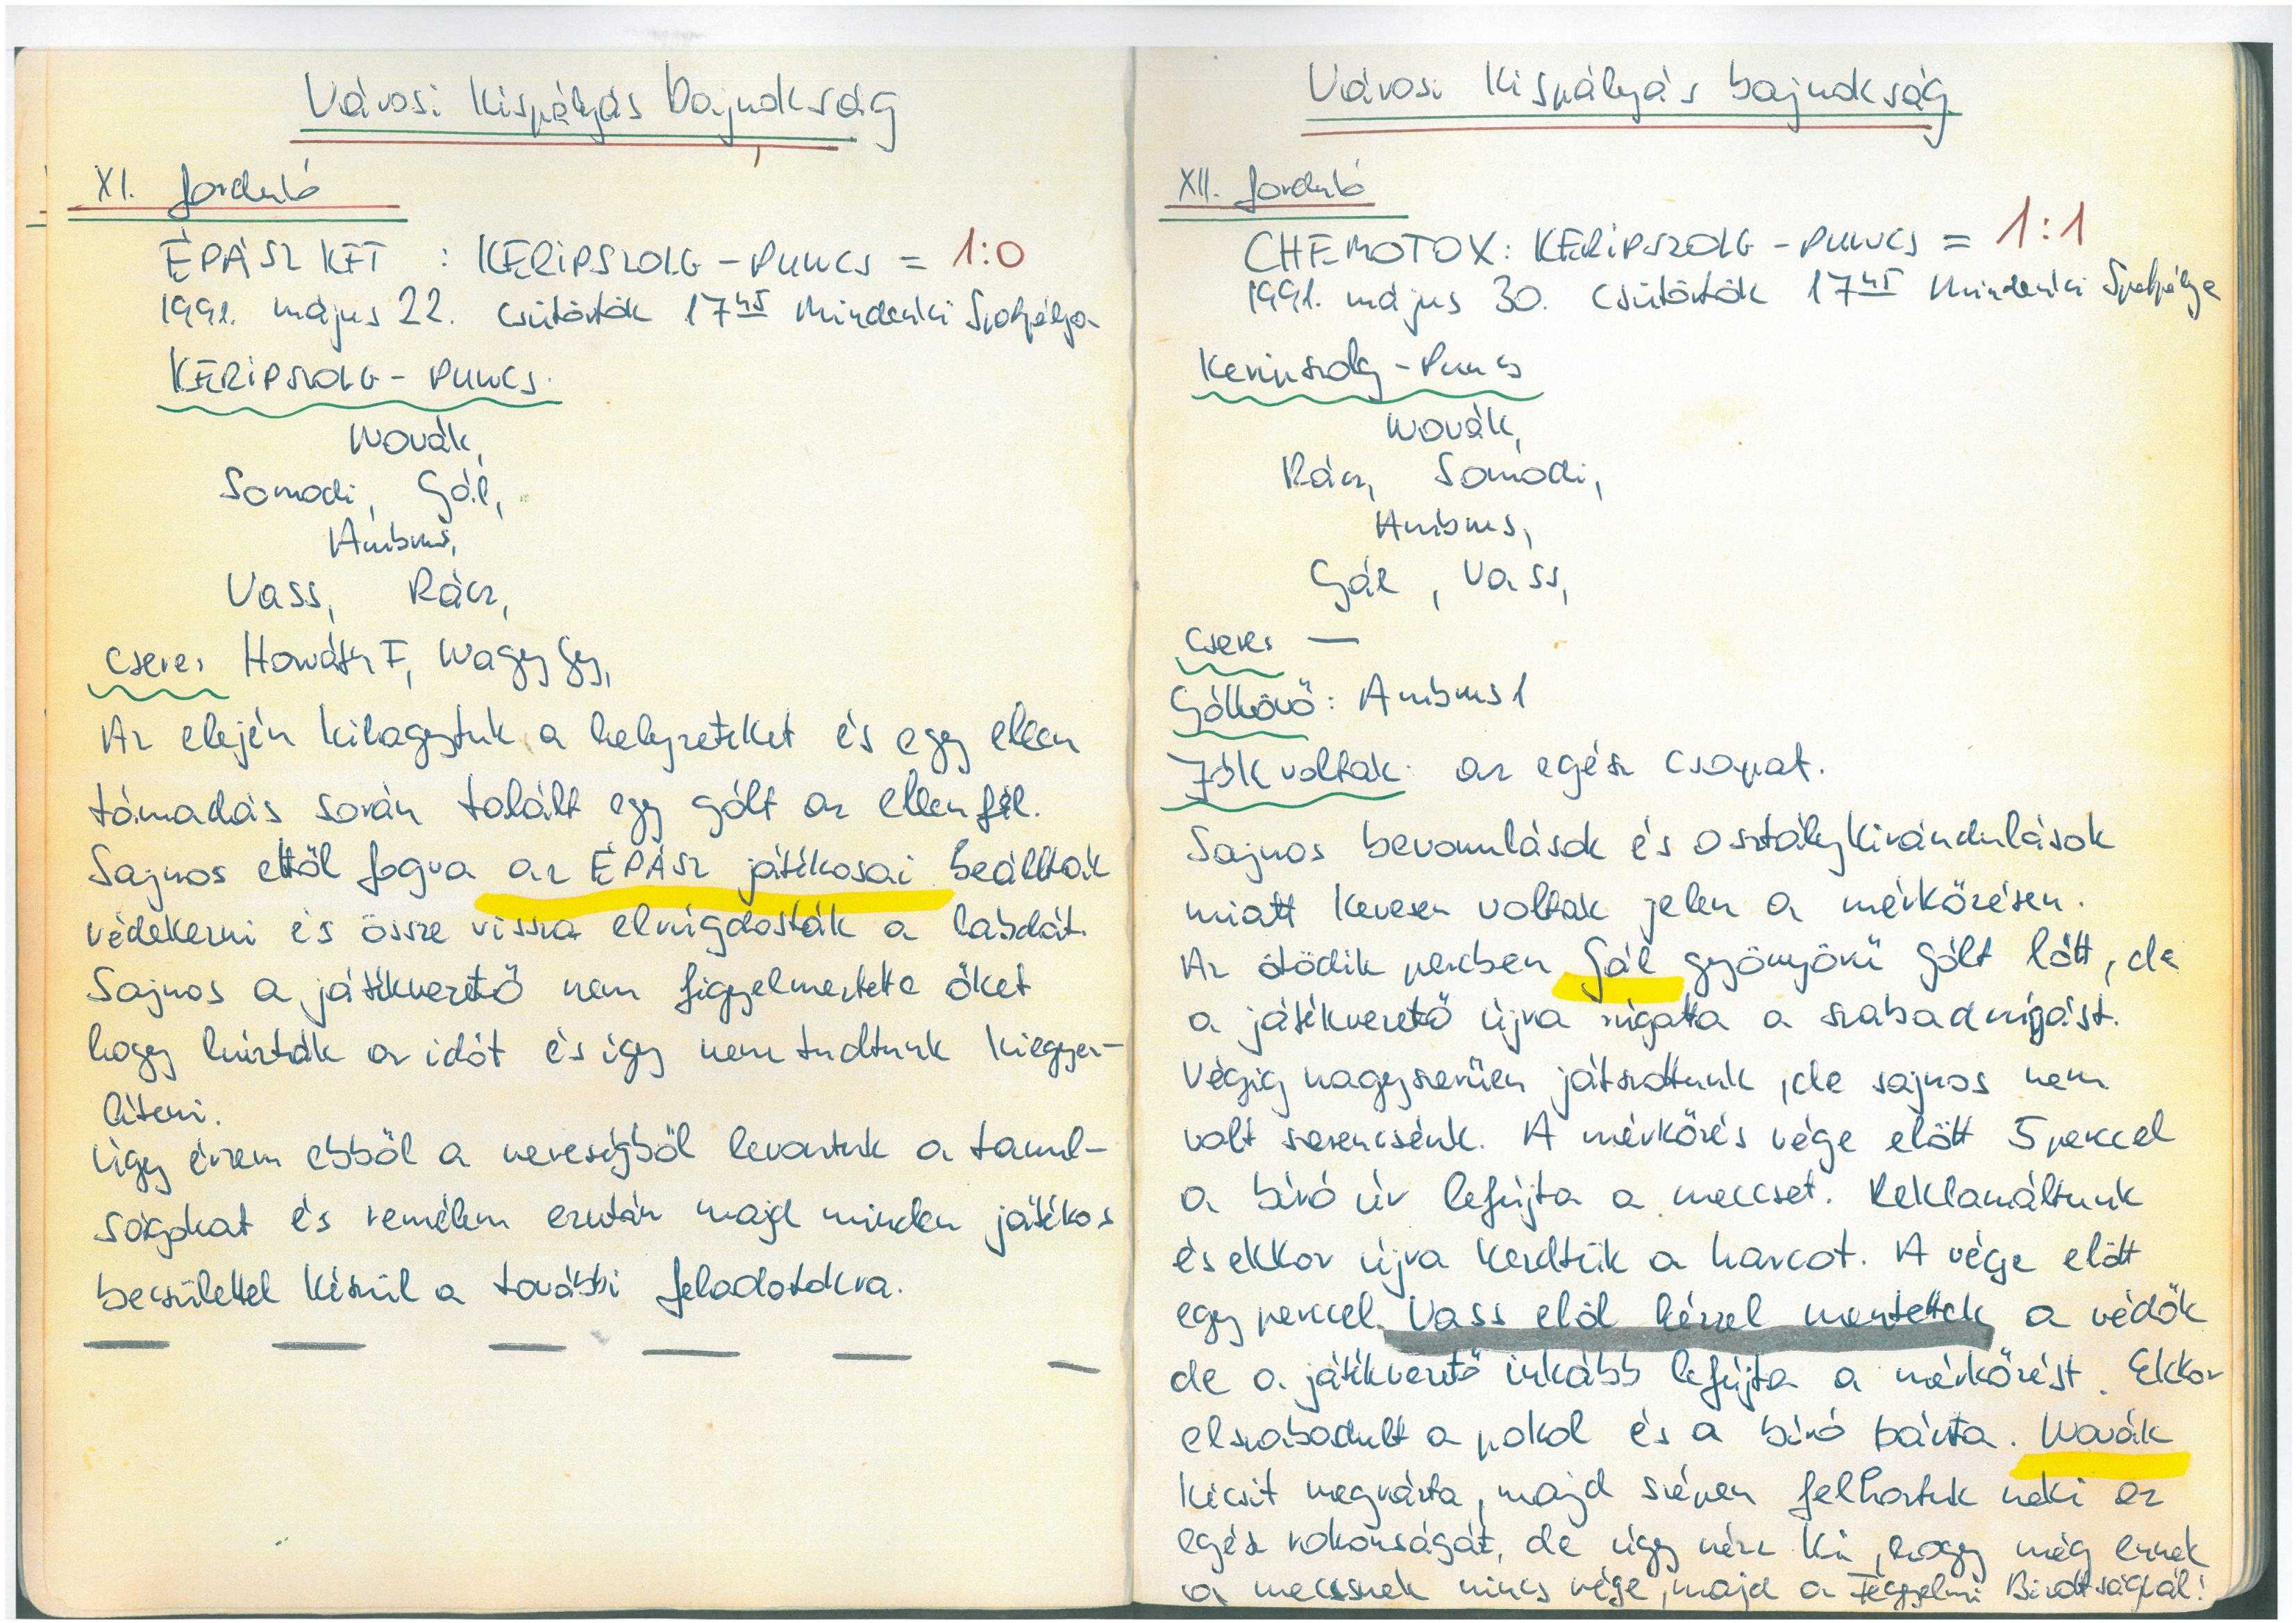 Városi Kispályás bajnokság
XI. forduló
ÉPÁSZ KFT : KERIPSZOLG - PUNCS = 1:0
1991. május 22. csütörtök 17 45 Mindenki Sportpálya
KERIPSZOLG - PUNCS.
Novák,
Somodi, Gál,
Ambrus,
Vass, Rácz,
Csere: Horváth F, Nagy Gy,
Az elején kihagytuk a helyzeteket és egy ellen
támadás során talált egy gólt az ellenfél.
Sajnos ettől fogva az ÉPÁSZ játékosai beálltak
védekezni és össze vissza elrúgdosták a labdát.
Sajnos a játékvezető nem figyelmeztete őket
hogy húzták az idót és így nem tudtunk kiegyen-
líteni.
Úgy érzem ebből a vereségből levontuk a tanul-
ságokat és remélem ezután majd minden játékos
becsülettel készül a további feladatokra.
Városi Kispályás bajnokság
XII. forduló
CHEMOTOX: KERIPSZOLG - PUNCS = 1:1
1991. május 30. csütörtök 17 45 Mindenki Sportpálya
Keripszolg - Puncs
Novák,
Rácz, Somodi,
Ambrus,
Gál, Vass,
Csere: —
Góllövő: Ambrus 1
Jók voltak: az egész csapat.
Sajnos bevonulások és osztálykirándulások
miatt kevesen voltak jelen a mérkőzésen.
Az ötödik percben Gál gyönyörű gólt lőtt, de
a játékvezető újra rúgatta a szabadrúgást.
Végig nagyszerűen játszottunk, de sajnos nem
volt szerencsénk. A mérkőzés vége előtt 5 perccel
a bíró úr lefújta a meccset. Reklamáltunk
és ekkor újra kezdtük a harcot. A vége előtt
egy perccel Vass elől kézzel mentettek a védők
de a játékvezető inkább lefújta a mérkőzést. Ekkor
elszabadult a pokol és a bíró bánta. Novák
kicsit megvárta, majd szépen felhoztuk neki az
egész rokonságát, de úgy néz ki, hogy még ennek
a meccsnek nincs vége, majd a Fegyelmi Bizottságnál!